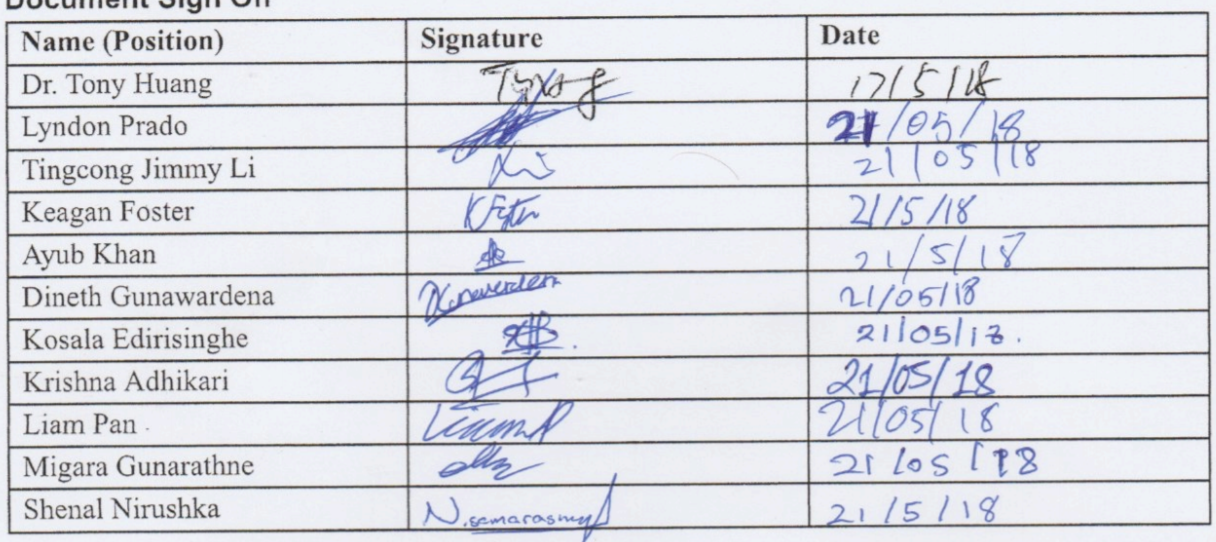 Document Sign Off
Name (Position) Signature Date
Dr. Tony Huang 17/5/18
Lyndon Prado 21/05/18
Tingcong Jimmy Li Li 21/05/18
Keagan Foster K Foster 21/5/18
Ayub Khan 21/5/18
Dineth Gunawardena 21/05/18
Kosala Edirisinghe 21/05/18.
Krishna Adhikari 21/05/18
Liam Pan LiamP 21/05/18
Migara Gunarathne 21/05/18
Shenal Nirushka 21/5/18